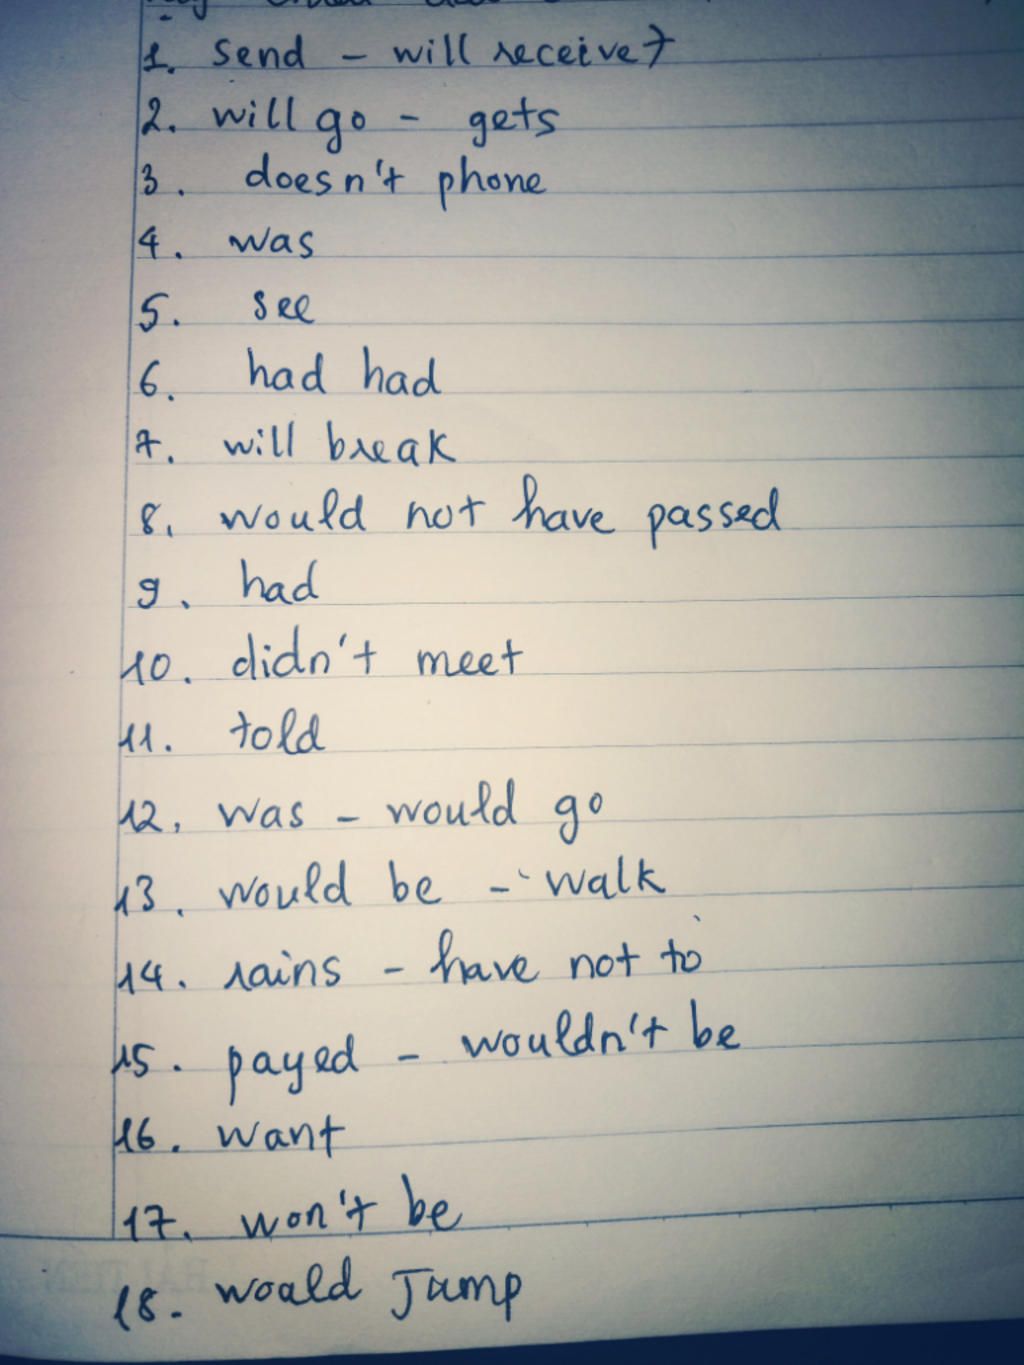 1. send - will receive
2. will go - gets
3. doesn't phone
4. was
5. see
6. had had
7. will break
8. would not have passed
9. had
10. didn't meet
11. told
12. was - would go
13. would be - walk
14. rains - have not to
15. payed - wouldn't be
16. want
17. won't be
18. woald Jump